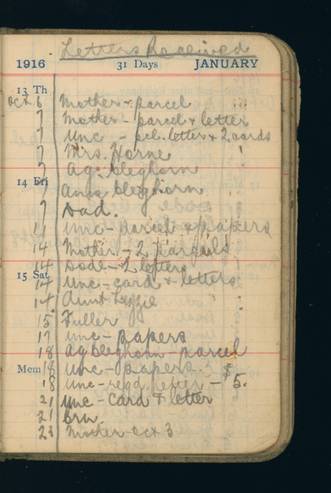 Letters Received
1916 31 Days JANUARY
13 Th
Oct 6 Mother - parcel
7 Mother - parcel & letter
7 Unc - pcl. letter & 2 cards
7 Mrs. Horne
7 Ag. Cleghorn
14 Fri
Cleghorn
7 Dad.
Unc - parcel & papers
14 Mother - 2 parcels
14 Dode - 2 letters
15 Sat
14 Unc - card & letters
14 Aunt Lizzie
15 Fuller
17 Unc - papers
18 Ag Cleghorn - parcel
Mem 18 Unc - papers.
18 Unc - regd. letter - $5.
21 Unc - card & letter
21
23 Mother Oct 3